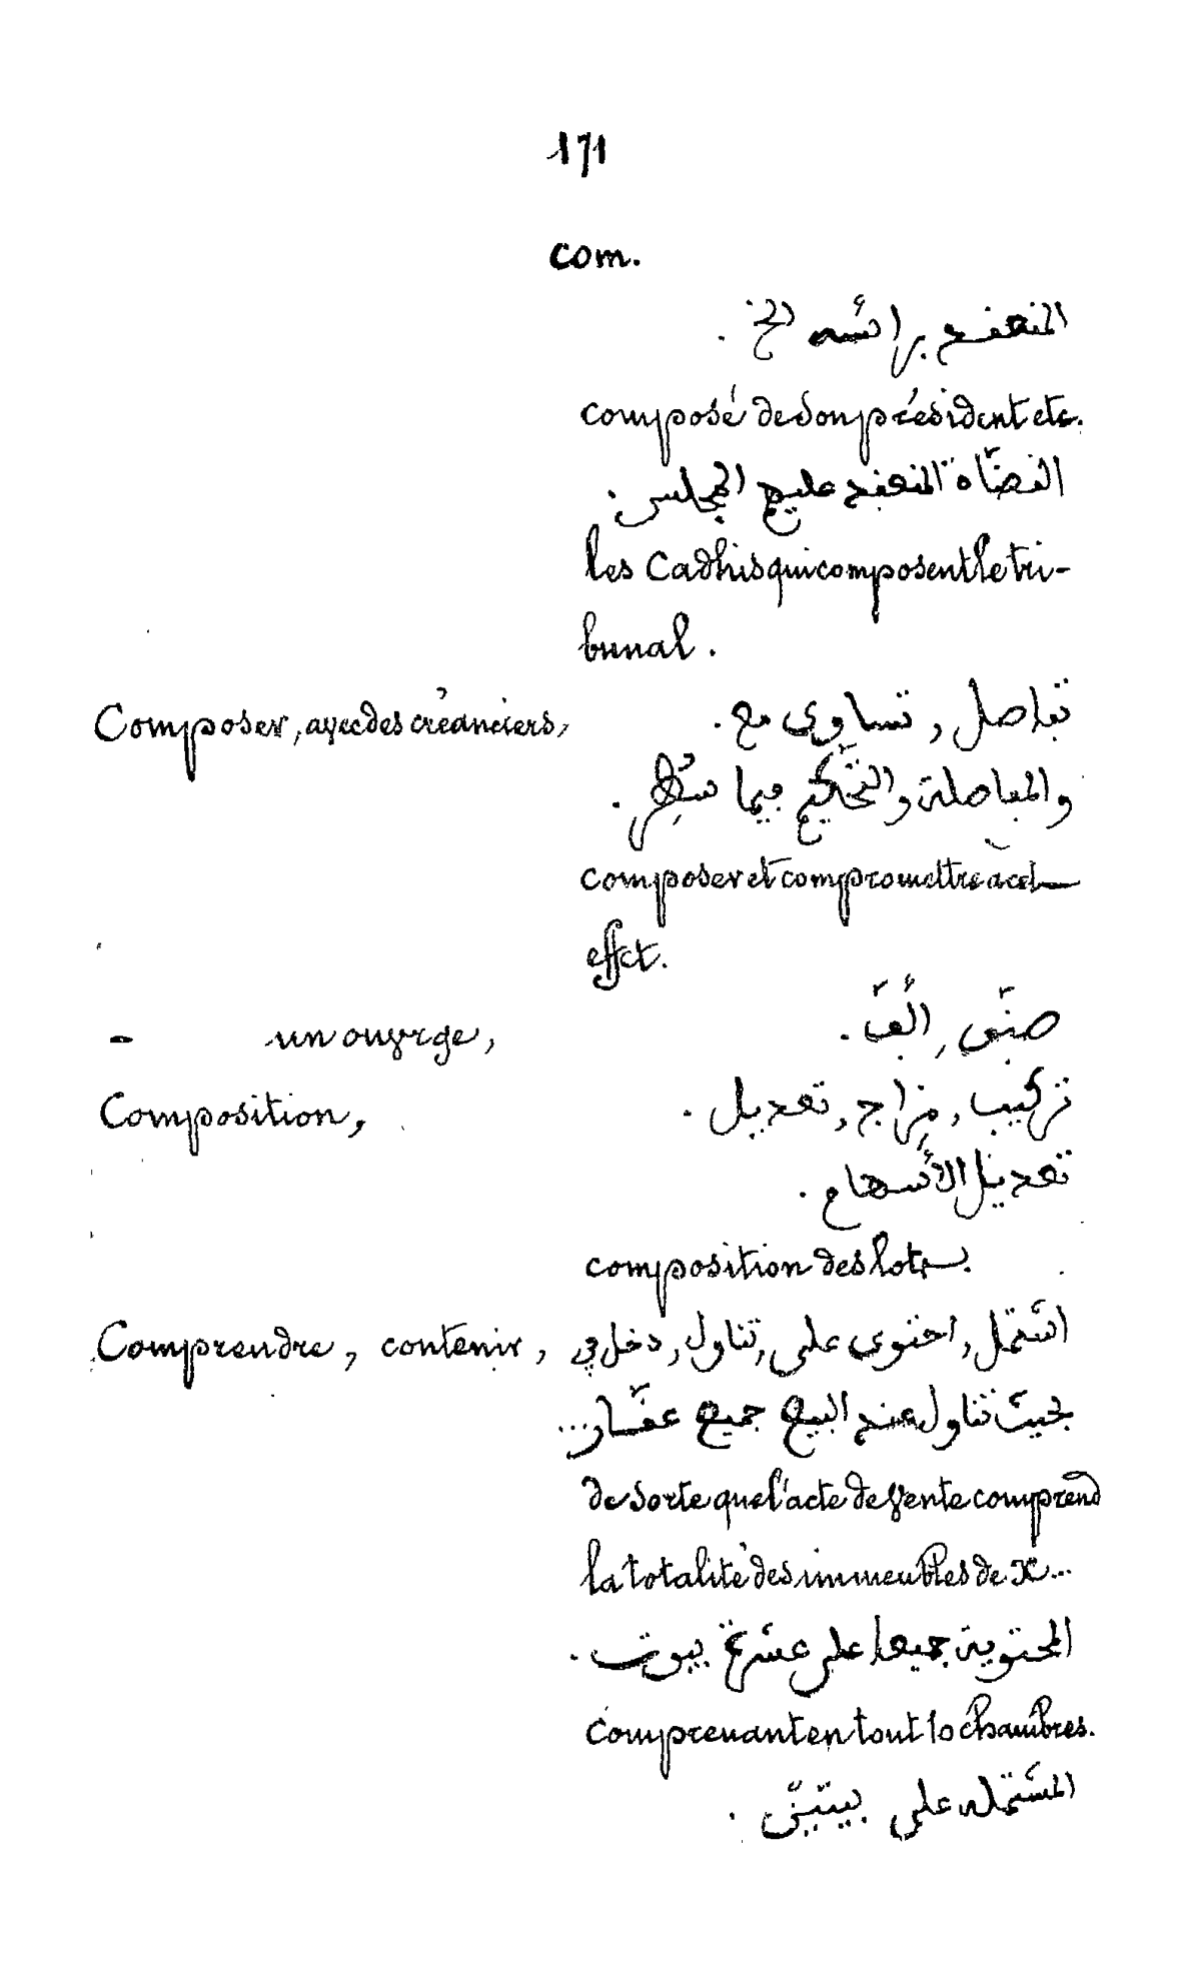 171
com.
المنعقد برائسه الخ.
composé de son président etc.
القضّاة المنعقد عليهم المجلس.
les Cadhis qui composent le tri-
bunal.
Composer, avec des créanciers, تفاصل, تساوى مع.
والمفاصلة والتّحكيم فيما
composer et compromettre à cet
effet.
- un ouvrge, صنّف, ألّف.
Composition, تركيب, مزاج, تعديل.
تعديل الأسهام.
composition des lots.
Comprendre, contenir, اشتمل, احتوى على, تناول, دخل في
بحيث تناول عند البيع جميع عقّار...
de sorte que l'acte de vente comprend
la totalité des immeubles de X...
المحتوية جميعا على عشرة بيوت.
comprenant en tout 10 chambres.
المشتملة على بيتين.